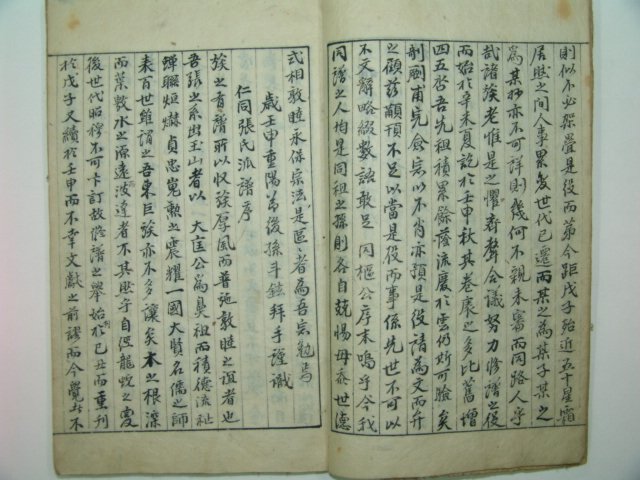 則似不必架疊是役而第今距戊子殆近五十星霜
居然之間人事累變世代已遷而某之為某子某之
為某抄亦不可詳則幾何不親未審而同路人乎
哉諸族老惟是之懼齊聲合議努力修譜之役
而始於辛未夏設於壬申秋其卷袠之多比舊增
四五啓吾先祖積累餘蔭流慶於雲仍斯可驗矣
剞劂甫完僉宗以不肖亦預是役請為文而弁
之顧茲顓預不足以當是役而事係先世不可以
不文辭略綴數語敢足同樞公序末嗚乎今我
同譜之人均是同祖之孫則各自兢惕毋忝世德
式相敦睦永保宗法是區區者為吾宗勉焉
歲壬申重陽節後孫斗鉉拜手謹識
仁同張氏派譜序
族之有譜所以收族厚風而普施敦睦之誼者也
吾張之系出玉山者以大匡公為鼻祖而積德流祉
蟬聯烜爀貞忠嵬勲之震耀一國大賢名儒之師
表百世維謂之吾東巨族亦不多讓矣木之根深
而葉敷水之源遠波達者不其然乎自經龍蛇之變
後世代昭穆不可卡訂故修譜之舉始於己丑而重刊
於戊子又續於壬申而不幸文獻之前謬而今覺其不